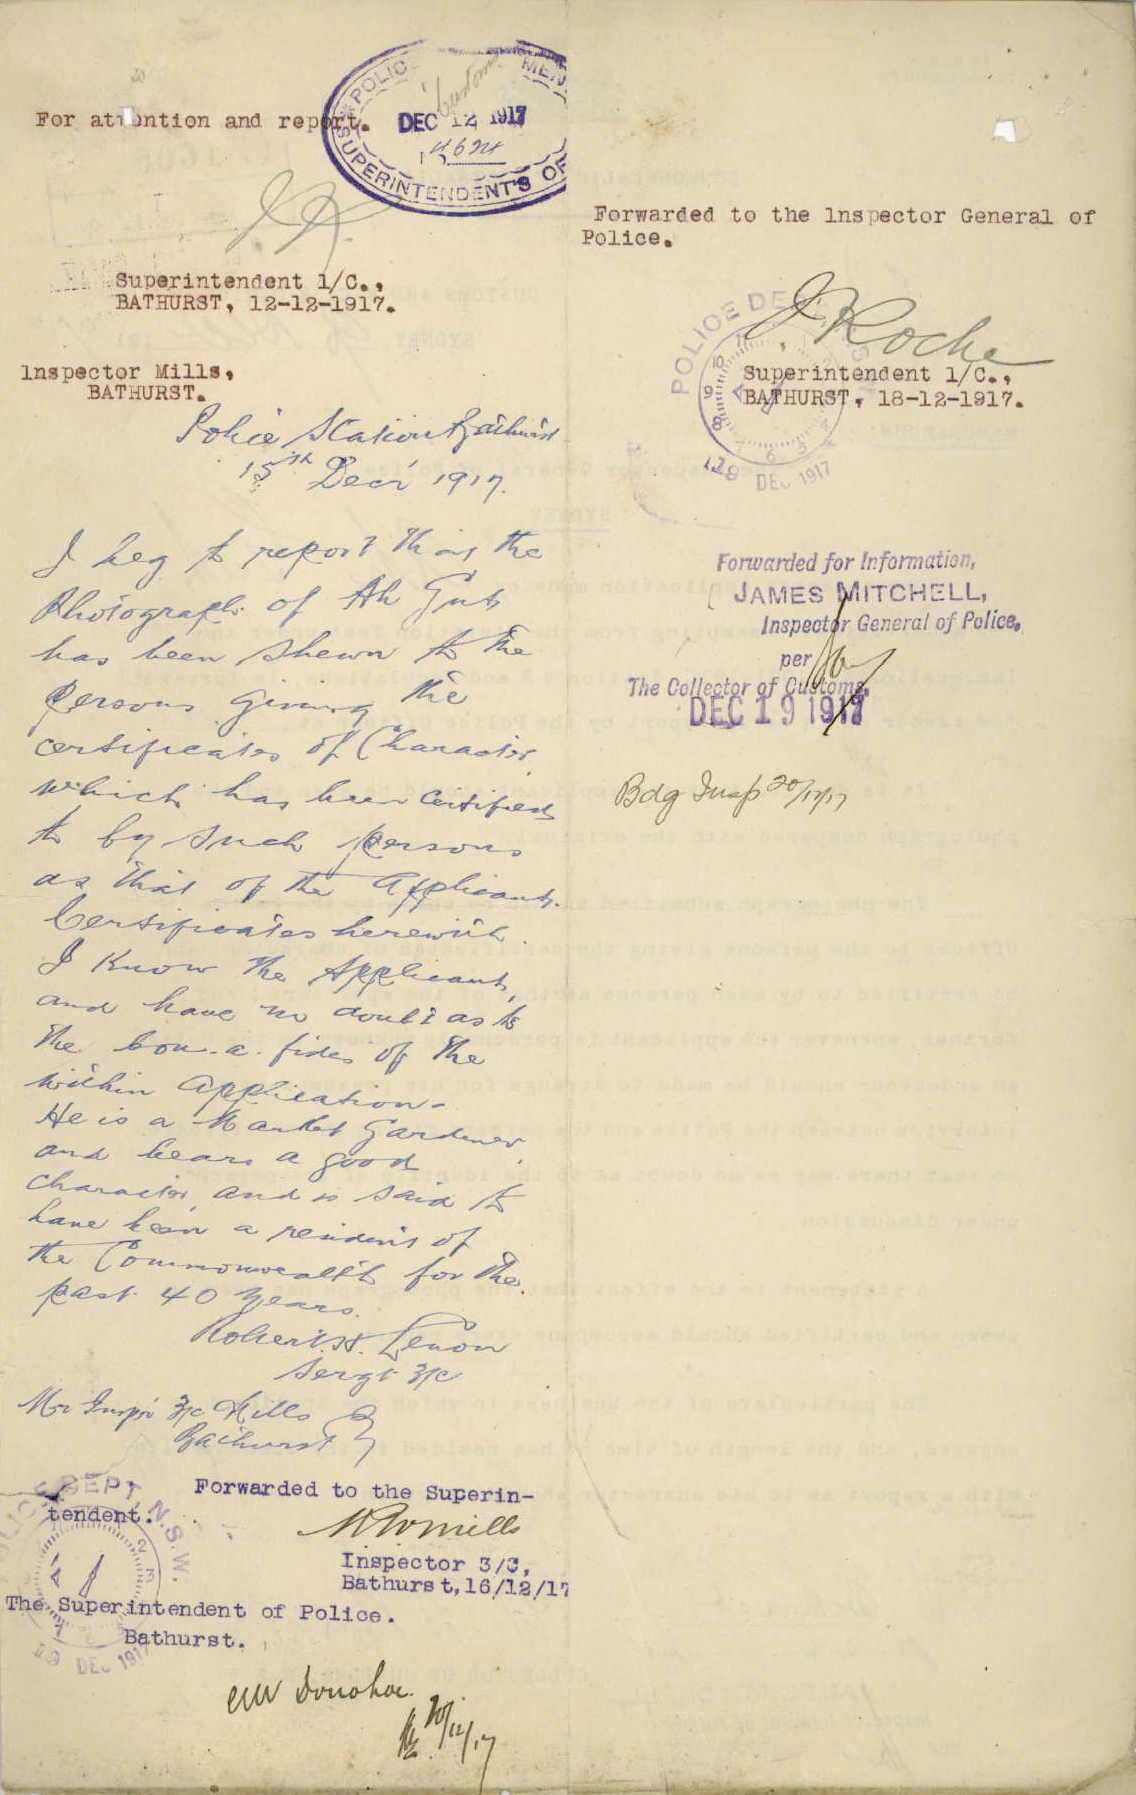 For attention and report.
POLIC MEN
Customs
DEC 12 1917
SUPERINTENDENT'S OF
JR.
Superintendent 1/C.,
BATHURST, 12-12-1917.
lnspector Mills,
BATHURST.
Police Station Bathurst
15th Decr 1917.
I beg to report that the
Photograph of Ah Gut
has been shewn to the
Persons giving the
certificates of Character
which has been certified
to by such persons
as that of the Applicant.
Certificates herewith.
I know the Applicant,
and have no doubt as to
the bon-a-fides of the
within application-
He is a Market Gardener,
and bears a good
character, and is said to
have been a resident of
the Commonwealth for the
past 40 years.
Robert H. Lenon
Sergt 3/c
Mr Inspr 3/c Mills
Bathurst
Forwarded to the Superin-
tendent.
Mills
Inspector 3/C,
Bathurst, 16/12/17
The Superintendent of Police.
Bathurst.
POLICE DEPT, N.S.W.
DEC 1917
Donohoe
20/12/17
Forwarded to the lnspector General of
Police.
J Roche
Superintendent 1/C.,
BATHURST, 18-12-1917.
POLICE DE
19 DEC 1917
Forwarded for Information,
JAMES MITCHELL,
Inspector General of Police.
per
The Collector of Customs,
DEC 19 1917
Bdg Insp 20/12/17